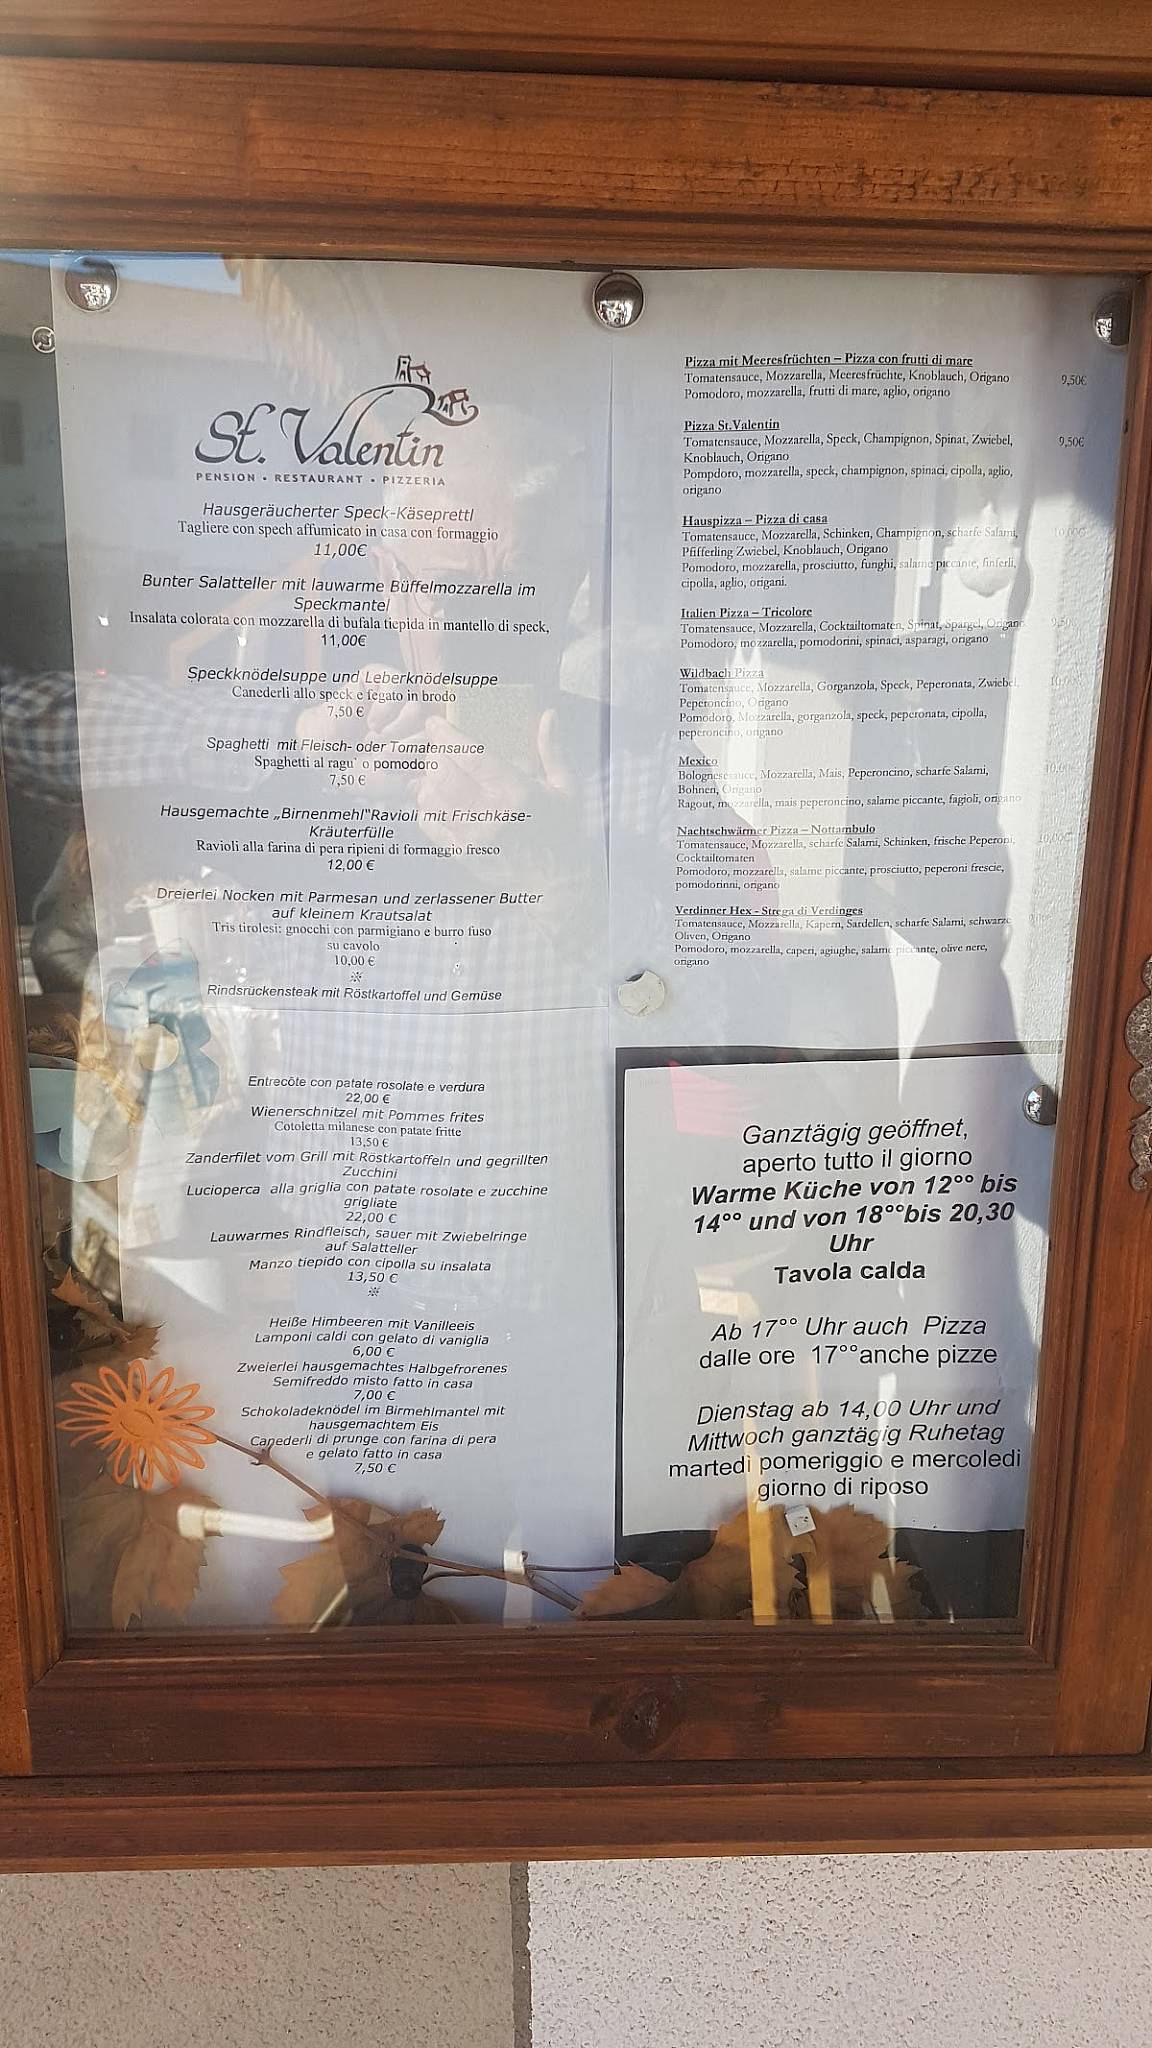 St. Valentin
PENSION • RESTAURANT • PIZZERIA
Hausgeräucherter Speck-Käseprettl
Tagliere con spech affumicato in casa con formaggio
11,00€
Bunter Salatteller mit lauwarme Büffelmozzarella im
Speckmantel
Insalata colorata con mozzarella di bufala tiepida in mantello di speck,
11,00€
Speckknödelsuppe und Leberknödelsuppe
Canederli allo speck e fegato in brodo
7,50 €
Spaghetti mit Fleisch- oder Tomatensauce
Spaghetti al ragu` o pomodoro
7,50 €
Hausgemachte „Birnenmehl"Ravioli mit Frischkäse-
Kräuterfülle
Ravioli alla farina di pera ripieni di formaggio fresco
12,00 €
Dreierlei Nocken mit Parmesan und zerlassener Butter
auf kleinem Krautsalat
Tris tirolesi: gnocchi con parmigiano e burro fuso
su cavolo
10,00 €
※
Rindsrückensteak mit Röstkartoffel und Gemüse
Entrecôte con patate rosolate e verdura
22,00 €
Wienerschnitzel mit Pommes frites
Cotoletta milanese con patate fritte
13,50 €
Zanderfilet vom Grill mit Röstkartoffeln und gegrillten
Zucchini
Lucioperca alla griglia con patate rosolate e zucchine
grigliate
22,00 €
Lauwarmes Rindfleisch, sauer mit Zwiebelringe
auf Salatteller
Manzo tiepido con cipolla su insalata
13,50 €
※
Heiße Himbeeren mit Vanilleeis
Lamponi caldi con gelato di vaniglia
6,00 €
Zweierlei hausgemachtes Halbgefrorenes
Semifreddo misto fatto in casa
7,00 €
Schokoladeknödel im Birmehlmantel mit
hausgemachtem Eis
Canederli di prunge con farina di pera
e gelato fatto in casa
7,50 €
Pizza mit Meeresfrüchten – Pizza con frutti di mare
Tomatensauce, Mozzarella, Meeresfrüchte, Knoblauch, Origano 9,50€
Pomodoro, mozzarella, frutti di mare, aglio, origano
Pizza St.Valentin
Tomatensauce, Mozzarella, Speck, Champignon, Spinat, Zwiebel, 9,50€
Knoblauch, Origano
Pompdoro, mozzarella, speck, champignon, spinaci, cipolla, aglio,
origano
Hauspizza – Pizza di casa
Tomatensauce, Mozzarella, Schinken, Champignon, scharfe Salami, 10,00€
Pfifferling Zwiebel, Knoblauch, Origano
Pomodoro, mozzarella, prosciutto, funghi, salame piccante, finferli,
cipolla, aglio, origani.
Italien Pizza – Tricolore
Tomatensauce, Mozzarella, Cocktailtomaten, Spinat, Spargel, Origano 9,50€
Pomodoro, mozzarella, pomodorini, spinaci, asparagi, origano
Wildbach Pizza
Tomatensauce, Mozzarella, Gorganzola, Speck, Peperonata, Zwiebel,
Peperoncino, Origano
Pomodoro, Mozzarella, gorganzola, speck, peperonata, cipolla,
peperoncino, origano
Mexico
Bolognesesauce, Mozzarella, Mais, Peperoncino, scharfe Salami,
Bohnen, Origano
Ragout, mozzarella, mais peperoncino, salame piccante, fagioli, origano
Nachtschwärmer Pizza – Nottambulo
Tomatensauce, Mozzarella, scharfe Salami, Schinken, frische Peperoni, 10,00€
Cocktailtomaten
Pomodoro, mozzarella, salame piccante, prosciutto, peperoni frescie,
pomodorinni, origano
Verdinner Hex - Strega di Verdinges
Tomatensauce, Mozzarella, Kapern, Sardellen, scharfe Salami, schwarze
Oliven, Origano
Pomodoro, mozzarella, caperi, agiughe, salame piccante, olive nere,
origano
Ganztägig geöffnet,
aperto tutto il giorno
Warme Küche von 12°° bis
14°° und von 18°°bis 20,30
Uhr
Tavola calda
Ab 17°° Uhr auch Pizza
dalle ore 17°°anche pizze
Dienstag ab 14,00 Uhr und
Mittwoch ganztägig Ruhetag
martedì pomeriggio e mercoledi
giorno di riposo